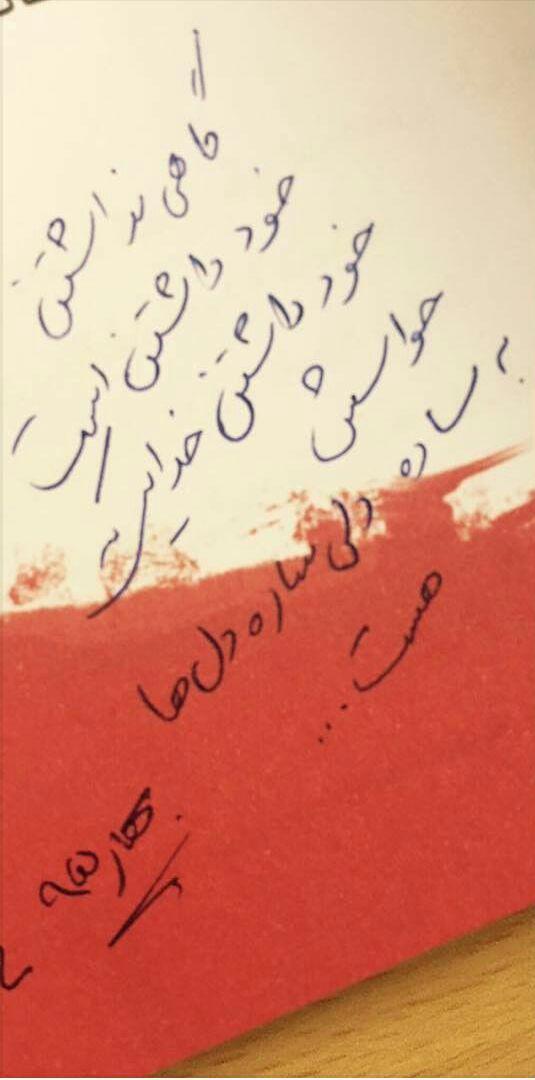 گاهی نداشتن
خود داشتن است
خود داشتن خدایی که
حواسش
به ساده دلی ساده دل ها
هست...